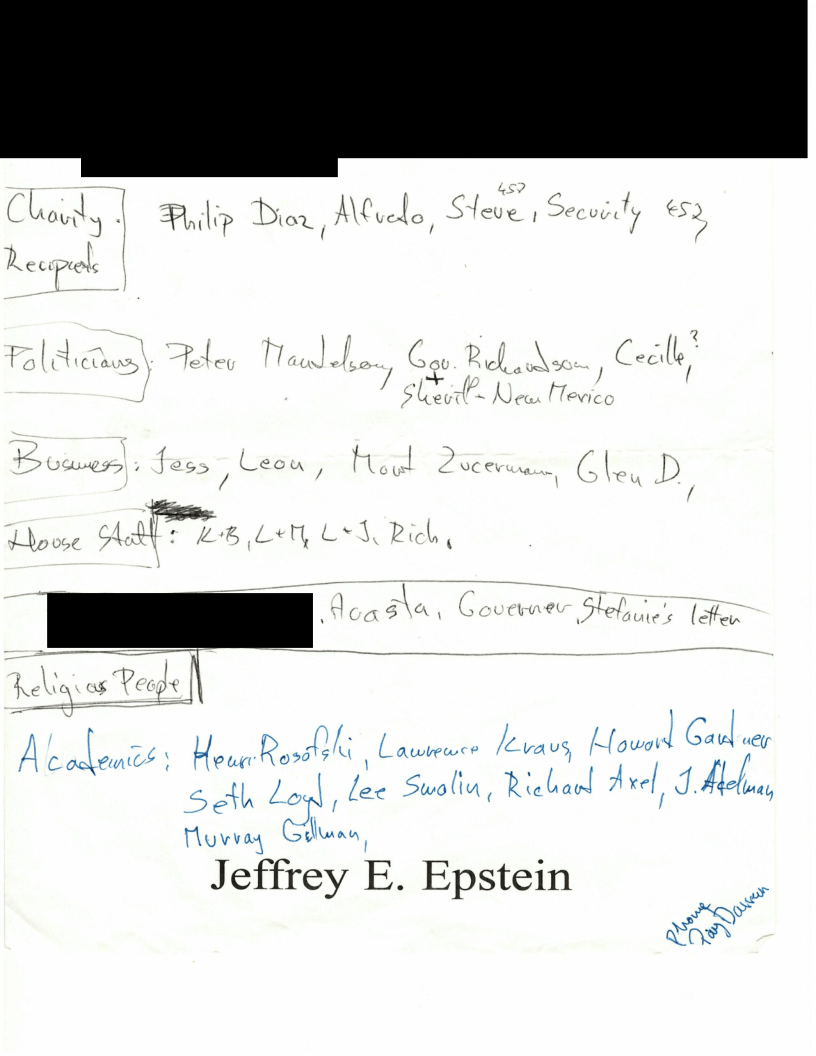 Charity. Philip Diaz, Alfredo, Steve, Security
Recipients
Politicians: Peter Mandelson, Gov. Richardson, Cecille,?
+
Sheriff - New Mexico
Business: Jess, Leon, Mort Zucermann, Glen D.,
House Staff: K+B, L+M, L+J, Rich,
, Acasta, Governer, Stefanie's letter
Religias People
Academics: Henri Rosofski, Lawrence Kraus, Howard Gardner
Seth Loyd, Lee Smolin, Richard Axel, J. Adelman
Murray Gellman,
Jeffrey E. Epstein
Phone